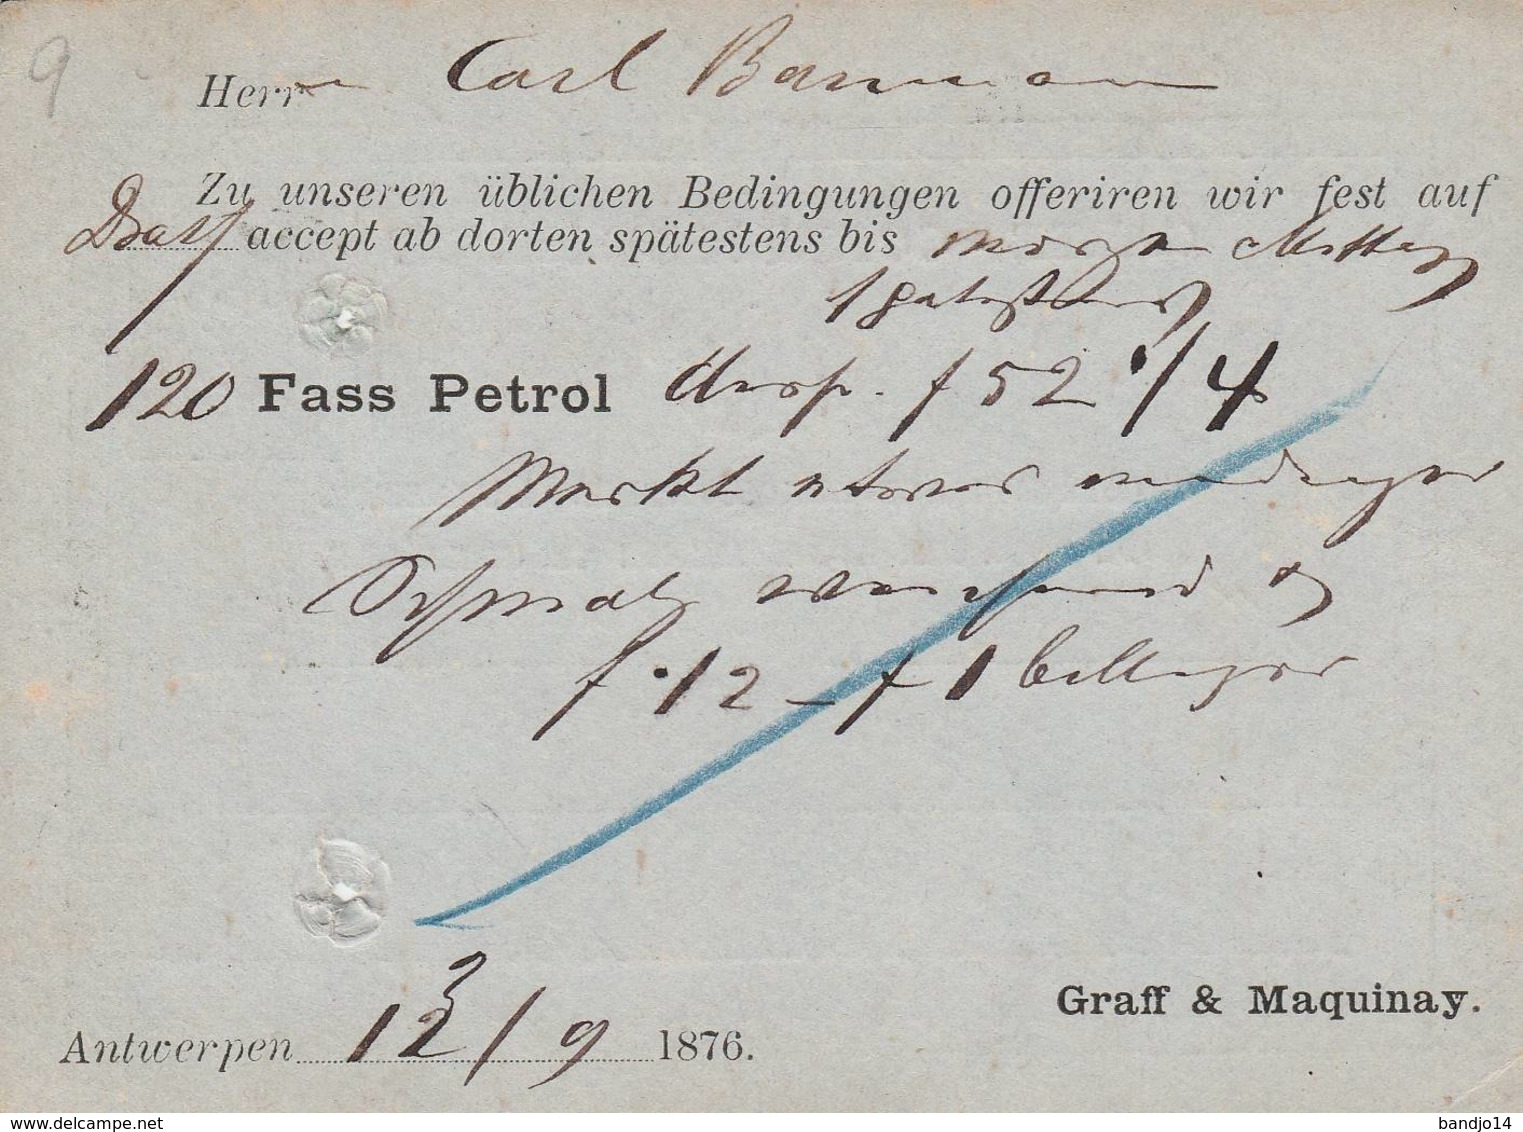 9
Herrn Carl Baumann
Zu unseren üblichen Bedingungen offeriren wir fest auf
Drahtaccept ab dorten spätestens bis morgen Mittag
120 Fass Petrol disp. f 52 1/4
Markt etwas niedriger
Schmalz
f 12 – f 1 billiger
Graff & Maquinay.
Antwerpen 12/9 1876.
www.delcampe.net
bandjo14